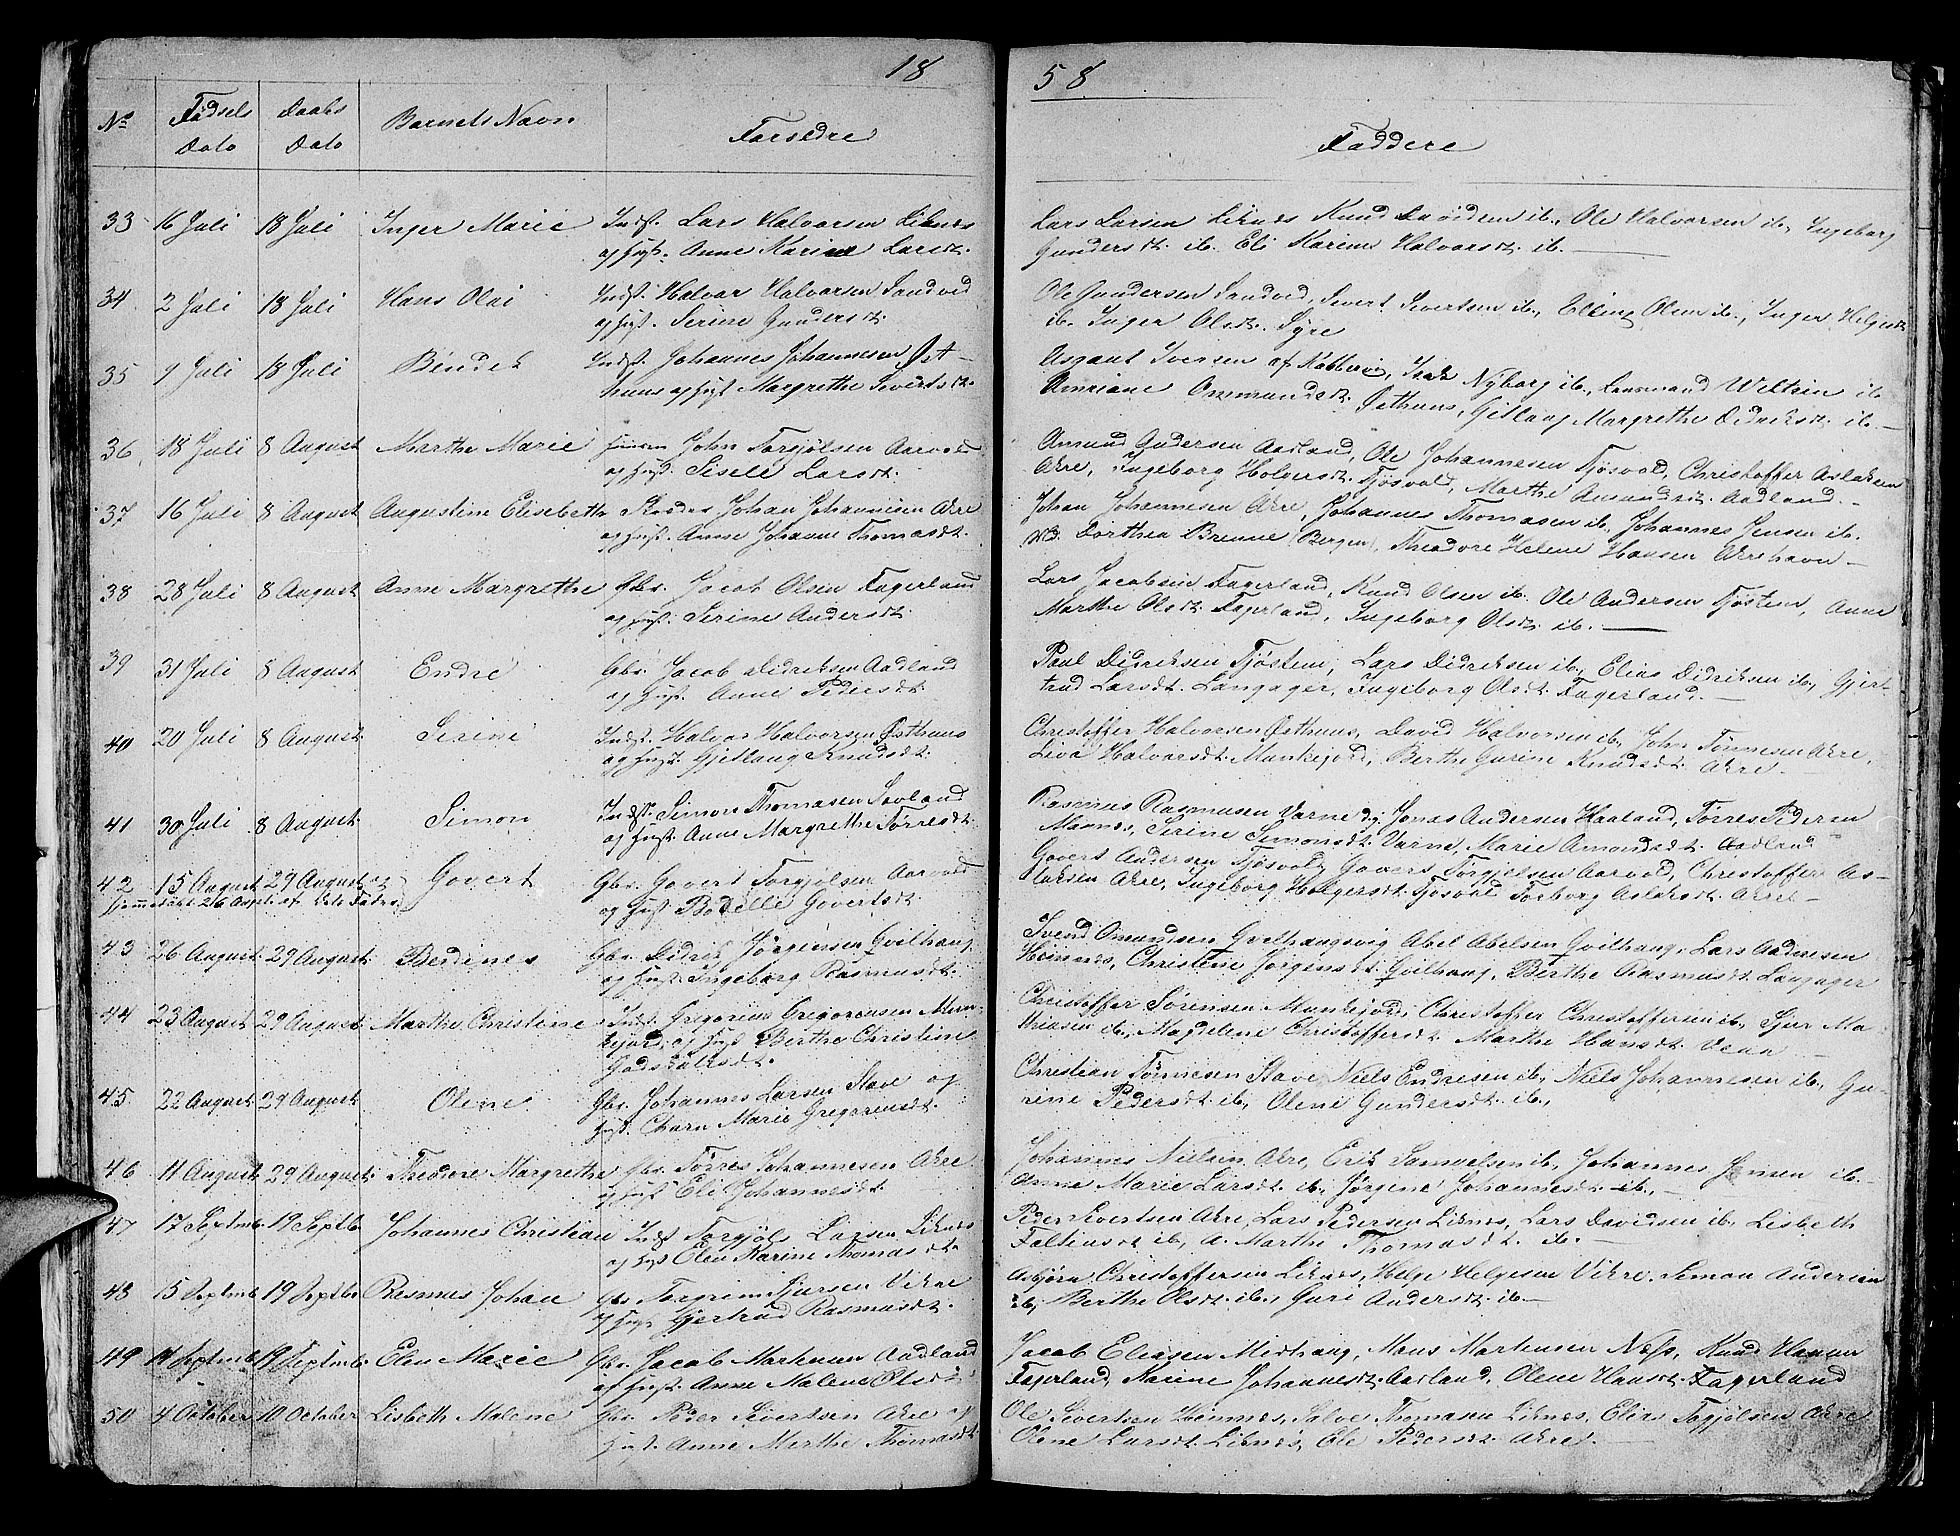 18
58
No Fødsels Dato Daabs Dato Barnets Navn Forældre
Faddere
33 16 Juli 18 Juli Inger Marie Indst. Lars Halvorsen Liknes
og Hust. Anne Karine Larsdt.
Lars Larsen Liknes Knud Davidsen ib., Ole Halvorsen ib., Ingeborg
Gundersdt. ib. Eli Karine Halvorsdt. ib.
34 2 Juli 18 Juli Hans Olai Indst. Halvor Halvorsen Sandved
og Hust. Serine Gundersdt.
Ole Gundersen Sandved, Sivert Sivertsen ib., Elling Olsen ib., Inger Helgesdt.
ib. Inger Olsdt. Syre
35 9 Juli 18 Juli Bendek Indst. Johannes Johannesen Øst-
huus og Hust Margrethe Sivertsdt.
Asgaut Iversen af Kobbervig, Isak Nyborg ib., Lensmand Weltzin ib
Amriane Ommundsdt. Østhuus, Gitlaug Margrethe Didriksdt. ib.
36 18 Juli 8 August Marthe Marie John Torgjølsen Aarvold
og Hust. Sisele Larsdt.
Amund Gudersen Aadland, Ole Johannesen Tjøsvold, Christoffer Aslaksen
Akre, Ingeborg Holgersdt. Tjøsvold, Marthe Amundsdt. Aadland.
37 16 Juli 8 August Augustine Elisebeth Johan Johannesen Akre
og Hust. Anne Johanne Thomasdt.
Johan Johannesen Akre, Johannes Thomasen ib., Johannes Jensen ib.
Dorthea Brenne (Bergen), Theodore Helene Hansen Akrehavn
38 28 Juli 8 August Anne Margrethe Gbr. Jacob Olsen Fagerland
og Hust. Serine Andersdt.
Lars Jacobsen Fagerland, Knud Olsen ib. Ole Andersen Tjøstem, Anne
Marthe Olsdt. Fagerland, Ingeborg Olsdt. ib.
39 31 Juli 8 August Endre Gbr. Jacob Didriksen Aadland
og Hust. Anne Pedersdt.
Paul Didriksen Tjøstem, Lars Didriksen ib., Elias Didriksen ib., Gjert-
rud Larsdt. Langager, Ingeborg Olsdt. Fagerland.
40 20 Juli 8 August Serine Indst. Halvor Halvorsen Østhuus
og Hust. Gjitlaug Knudsdt.
Christoffer Halvorsen Østhuus, David Halvorsen ib., John Tønnesen Akre,
Liva Halvorsdt. Munkejord, Berthe Gurine Knudsdt. Akre.
41 30 Juli 8 August Simon Indst. Simon Thomasen Sevland
og Hust. Anne Margrethe Tørresdt.
Rasmus Rasmusen Varne Jonas Andersen Haaland, Tørres Pedersen
Mannes, Serine Simonsdt. Varne, Marie Amondsdt. Aadland
42 15 August 29 August Govert Gbr. Govert Torgjølsen Aarvold
og Hust Bodelle Govertsdt.
Govert Andersen Tjøsvold, Govert Torgjelsen Aarvold, Christoffer As-
laksen Akre, Ingeborg Holgersdt. Tjøsvold Torborg Aslaksdt. Akre
43 26 August 29 August Berdines Gbr. Didrik Jørgensen Gvilhaug
og Hust Ingeborg Rasmusdt.
Svend Omundsen Gvelhaugsvig Abel Abelsen Gvilhaug, Lars Andersen
Heinnes, Christene Jørgensdt. Gvilhaug, Berthe Rasmusdt. Langager
44 23 August 29 August Marthe Christine Indst. Gregorius Gregorensen Mun-
kejord, og Hust Berthe Christine
Godskalksdt.
Christoffer Sørensen Munkejord, Christoffer Christoffersen ib., Sjur Ma-
thiasen ib., Magdelene Christoffersdt. Marthe Hansdt. Veaa
45 22 August 29 August Olene Gbr. Johannes Larsen Stave og
Hust. Charn Marie Gregorensdt.
Christian Tønnesen Stave, Niels Endresen ib., Niels Johannesen ib., Gu-
rine Pedersdt. ib., Olene Gundersdt. ib.,
46 11 August 29 August Theodore Margrethe Gbr. Tørres Johannesen Akre
og Hust Eli Johannesdt.
Johannes Nielsen Akre, Erik Samuelsen ib., Johannes Jensen ib.
Anne Marie Larsdt. ib., Jørgine Johannesdt. ib.
47 17 Septmb. 19 Septb. Johannes Christian Indst Torgjøls Larsen Liknes
og Hust Elen Karine Thomasdt.
Peder Sivertsen Akre, Lars Pedersen Liknes, Lars Davidsen ib., Lisbeth
Faltinsdt. ib., A. Marthe Thomasdt. ib.
48 15 Septmb 19 Septbr Rasmus Johan Gbr Torgrim Sjursen Vikre
og Hust Gjertrud Rasmusdt.
Asbjørn Christoffersen Liknes, Helge Helgesen Vikre, Simon Andersen
ib., Berthe Olsdt. ib., Guri Andersdt. ib.
49 14 Septmb 19 Septmb. Elen Marie Gbr. Jacob Martensen Aadland
og Hust. Anne Malene Olsdt.
Jacob Eliasen Midhaug, Mons Martensen Næss, Knud Hansen
Fagerland, Karine Johannesdt. Aadland, Olene Hansdt. Fagerland
50 4 October 10 October Lisbeth Malene Gbr. Peder Sivertsen Akre og
Hust. Anne Marthe Thomasdt
Ole Sivertsen Heinnes, Salve Thomasen Liknes, Elias Togjølsen Akre
Olene Larsdt. Liknes, Ole Pedersdt. Akre.